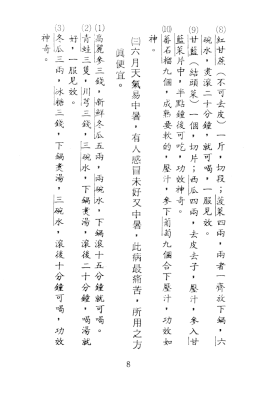 ⑻紅甘蔗(不可去皮)一斤,切段;菠菜四兩,兩者一齊放下鍋,六
碗水,煑滾二十分鐘,就可喝,一服見效。
⑼甘藍(結頭菜)一個,切片;西瓜四兩,去皮去子,壓汁,參入甘
藍菜片中,半點鐘後可吃,功效神奇。
⑽蕃石榴九個,成熟要軟的,壓汁,參下葡萄九個合下壓汁,功效如
㈢六月天氣易中暑,有人感冒未好又中暑,此病最痛苦,所用之方
眞便宜。
⑴高麗參三錢,新鮮冬瓜五兩,兩碗水,下鍋滾十五分鐘就可喝。
⑵青蛙三隻,川芎三錢,三碗水,下鍋煑湯,滾後二十分鐘,喝湯就
好,一服見效。
⑶冬瓜三兩,冰糖三錢,下鍋煑湯,三碗水,滾後十分鐘就可喝,功效
神奇。
8